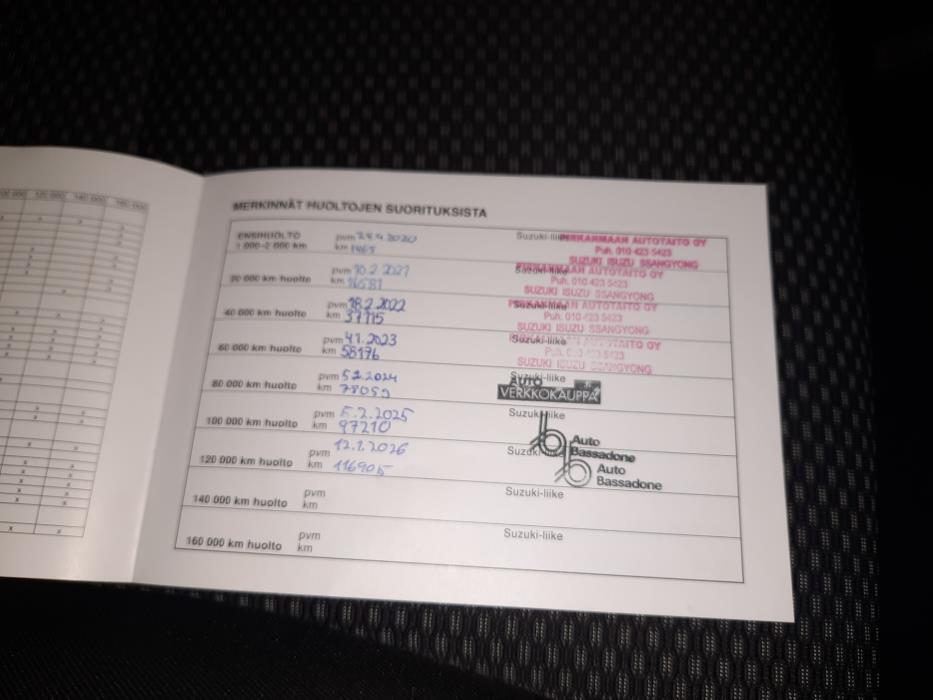 00 000 120 000 140 000 160 000
MERKINNÄT HUOLTOJEN SUORITUKSISTA
ENSIHUOLTO
1 000-2 000 km
pvm 24.4.2020
km 1465
Suzuki-liike
PIRKANMAAN AUTOTAITO OY
Puh. 010 423 5423
SUZUKI ISUZU SSANGYONG
20 000 km huolto
pvm 10.2.2021
km 16581
Suzuki-liike
PIRKANMAAN AUTOTAITO OY
Puh. 010 423 5423
SUZUKI ISUZU SSANGYONG
40 000 km huolto
pvm 18.2.2022
km 37715
Suzuki-liike
PIRKANMAAN AUTOTAITO OY
Puh. 010 423 5423
SUZUKI ISUZU SSANGYONG
60 000 km huolto
pvm 4.1.2023
km 58176
Suzuki-liike
PIRKANMAAN AUTOTAITO OY
Puh. 010 423 5423
SUZUKI ISUZU SSANGYONG
80 000 km huolto
pvm 5.2.2024
km 78059
Suzuki-liike
AUTO
VERKKOKAUPPA
100 000 km huolto
pvm 5.2.2025
km 97210
Suzuki-liike
Auto
Bassadone
120 000 km huolto
pvm 12.1.2026
km 116905
Suzuki-liike
Auto
Bassadone
140 000 km huolto
pvm
km
Suzuki-liike
160 000 km huolto
pvm
km
Suzuki-liike